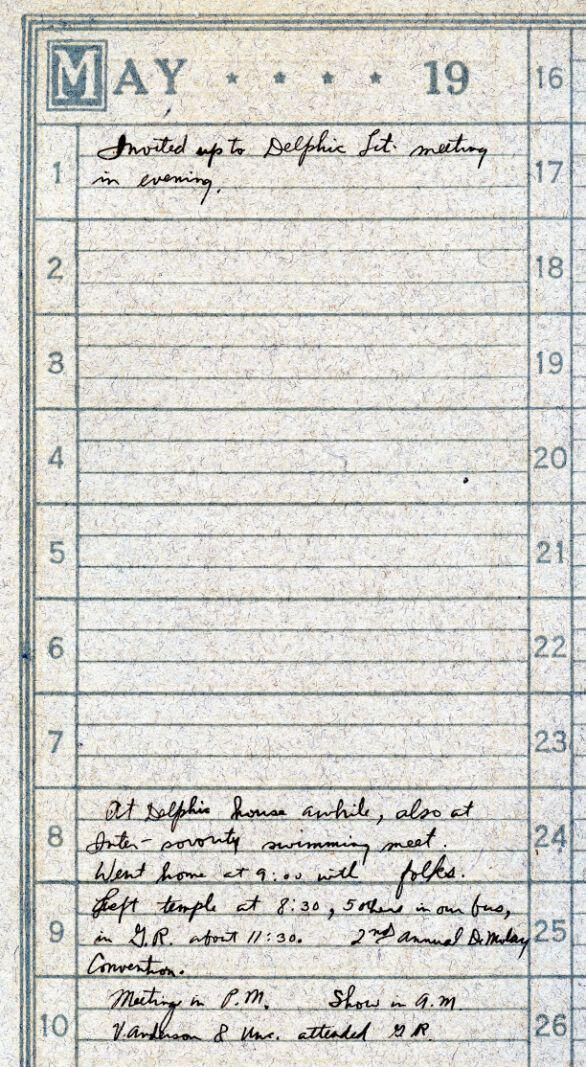 MAY * * * * 19
16
1 Invited up to Delphic Lit. meeting
in evening.
17
2
18
3
19
4
20
5
21
6
22
7
23
8 At Delphic house awhile, also at
Inter-sorority swimming meet.
Went home at 9:00 with folks.
24
9 Left temple at 8:30, 5 others in our bus,
in G.R. about 11:30. 2nd Annual DeMolay
Convention.
25
10 Meeting in P.M. Show in A.M
V. Anderson & attended G.R.
26